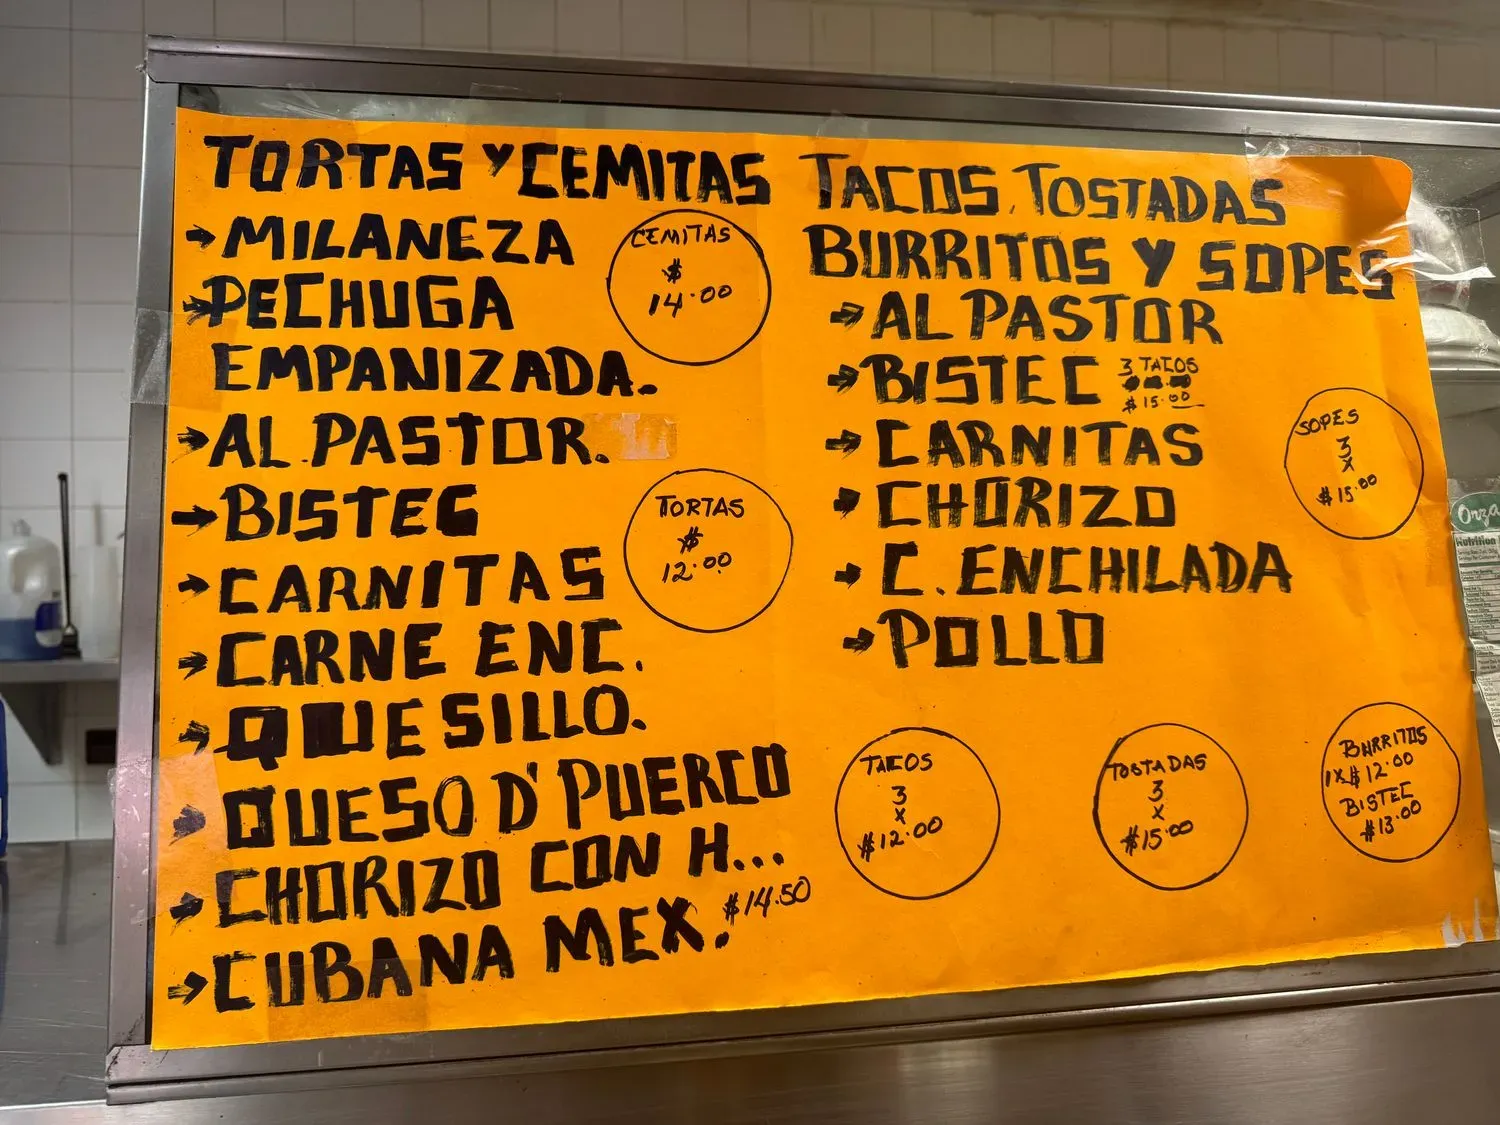 TORTAS Y CEMITAS
MILANEZA
PECHUGA
EMPANIZADA.
AL PASTOR.
BISTEC
CARNITAS
CARNE ENC.
QUESILLO.
QUESO D' PUERCO
CHORIZO CON H...
CUBANA MEX. $14.50
CEMITAS
$
14.00
TORTAS
$
12.00
TACOS, TOSTADAS
BURRITOS Y SOPES
AL PASTOR
BISTEC
3 TACOS
$15.00
CARNITAS
CHORIZO
C. ENCHILADA
POLLO
SOPES
3
X
$15.00
TACOS
3
X
$12.00
TOSTADAS
3
X
$15.00
BURRITOS
1X$12.00
BISTEC
$13.00
Onza
Nutrition